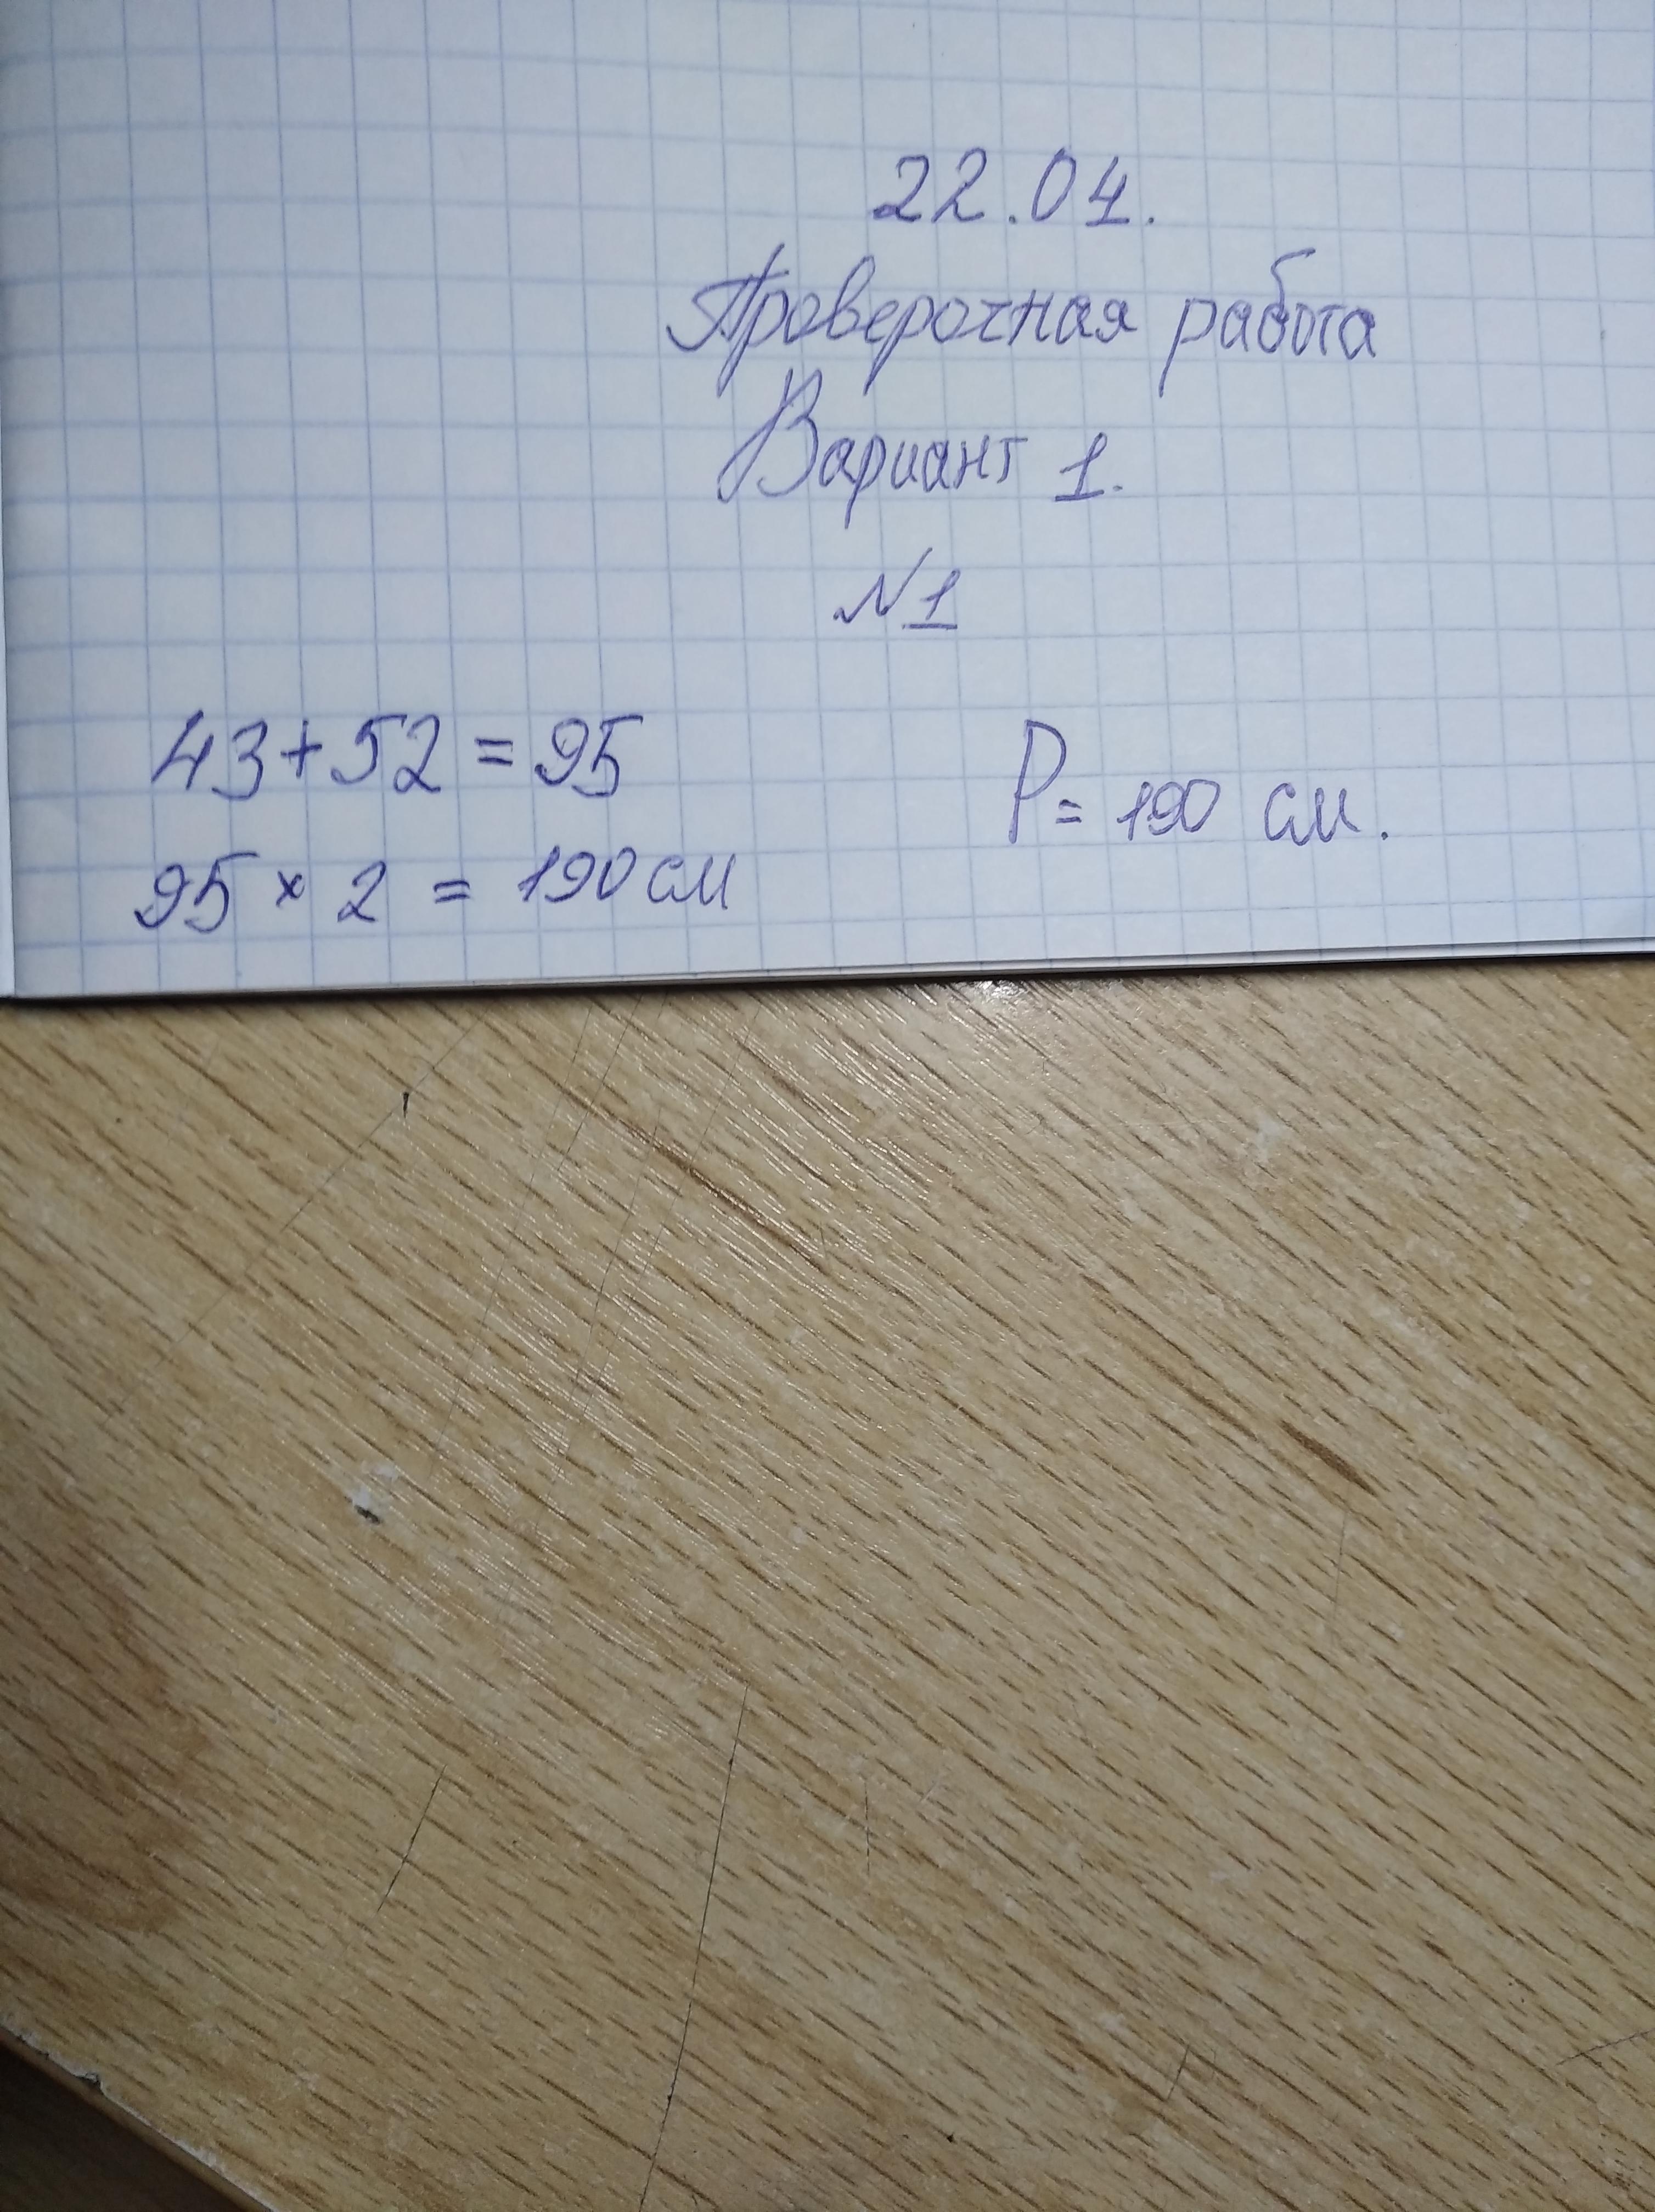 22.04.
Проверочная работа
Вариант 1.
№1
43+52=95
95 × 2 = 190 см
P= 190 см.